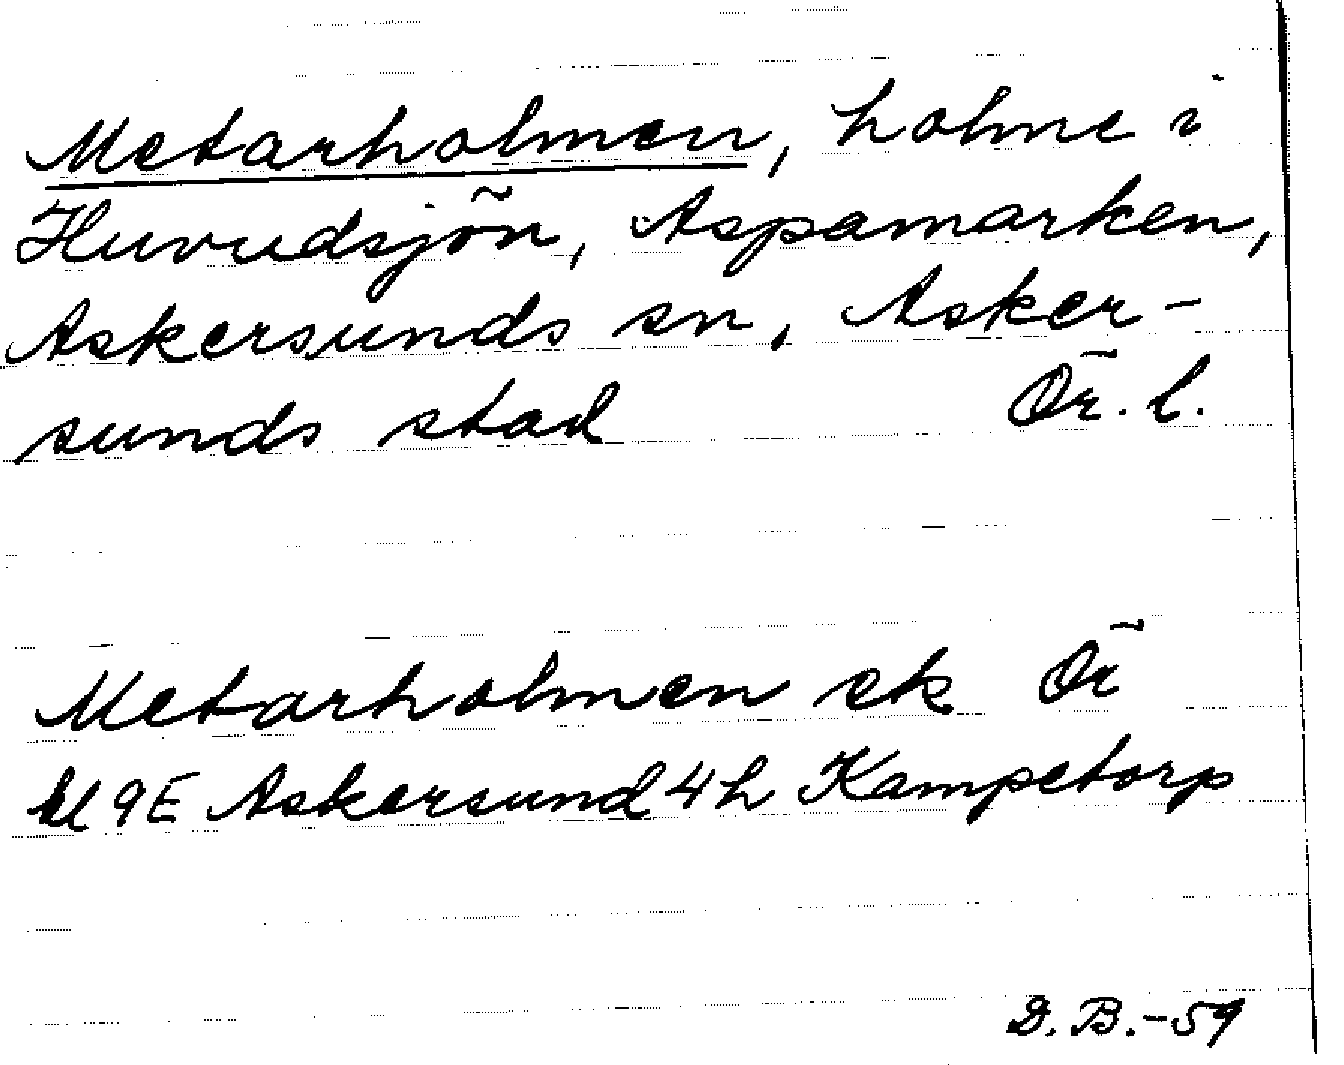 Metarholmen, holme i
Huvudsjön, Aspamarken,
Askersunds sn, Asker-
sunds stad Ör. l.
Metarholmen ek Ör
bl 9E Askersund 4h Kampetorp
D. B. -59